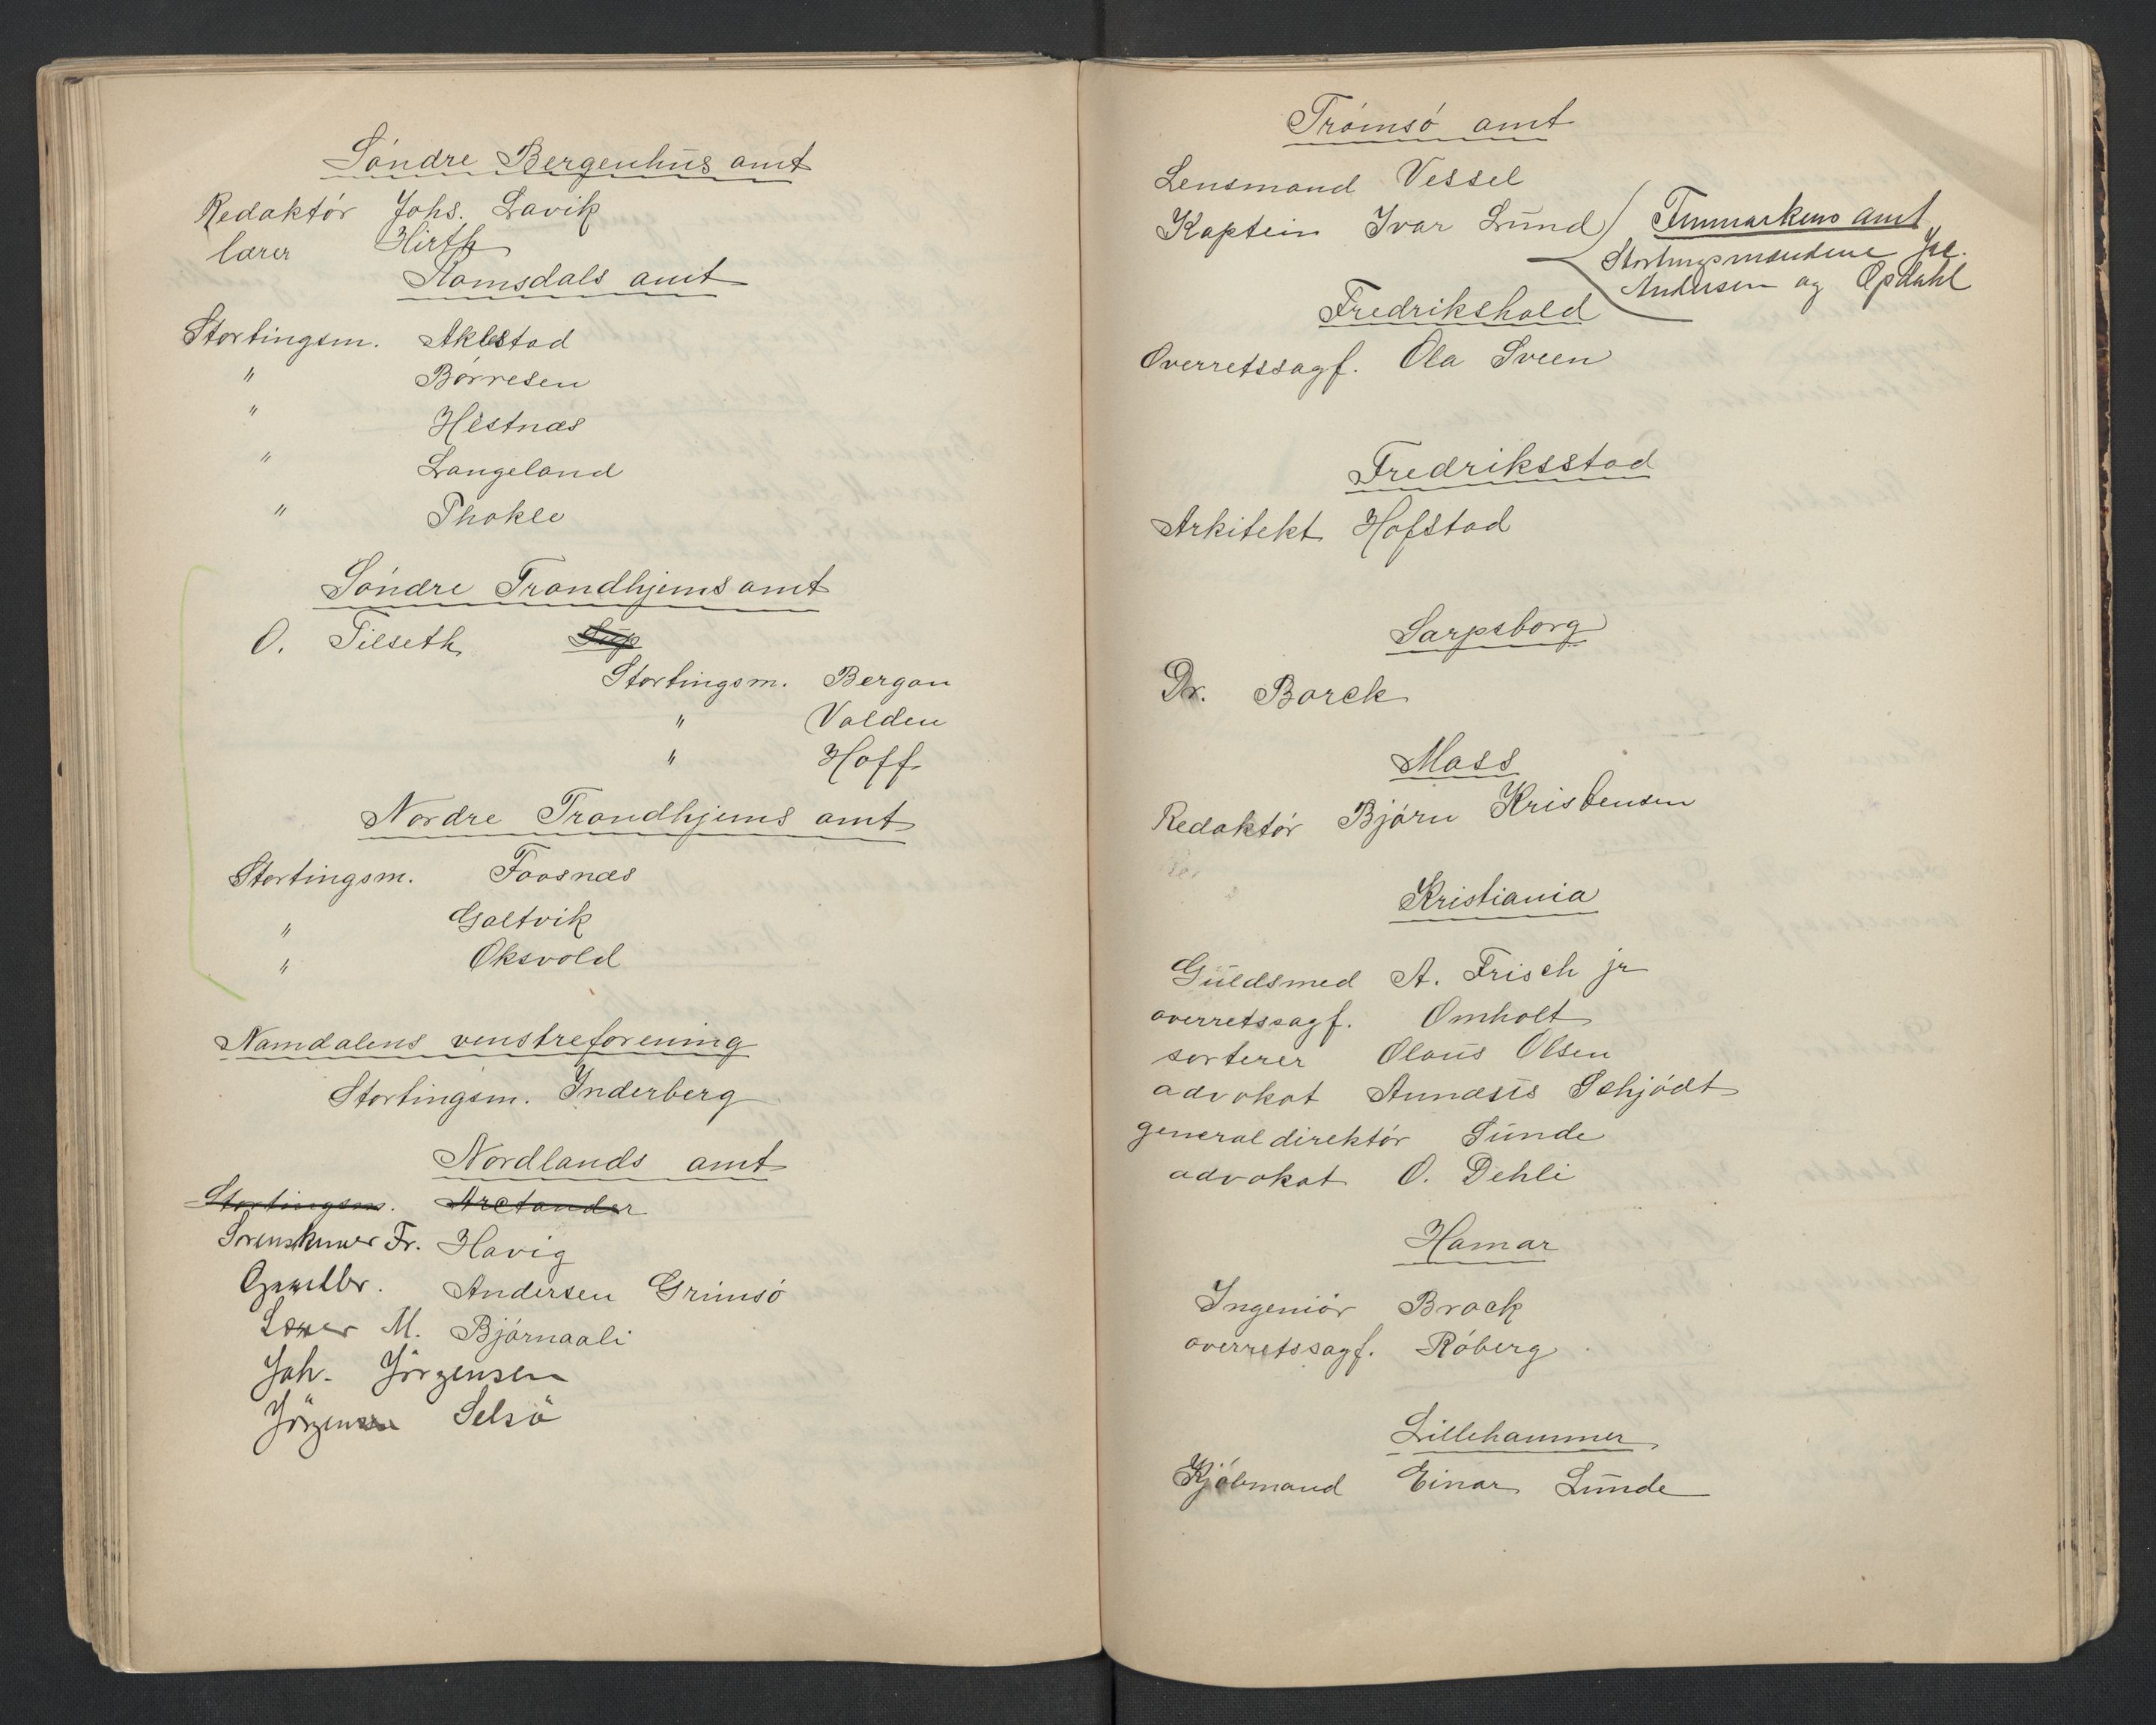 Söndre Bergenhus amt
Redaktör Johs. Lavik
lærer Hirth
Romsdals amt
Stortingsm. Aklestad
" Börresen
" Hestnæs
" Langeland
" Thokle
Söndre Trondhjems amt
O. Tilseth
Stortingsm. Bergan
" Volden
" Hoff
Nordre Trondhjems amt
Stortingsm. Foosnæs
" Galtvik
" Oksvold
Namdalens venstreforening
Stortingsm. Inderberg
Nordlands amt
Stortingsm. Arctander
Sorenskriver Fr. Havig
Gaardbr. Andersen Grimsö
Lærer M. Björnaali
Joh. Jörgensen
Jörgensen Selsö
Tromsö amt
Lensmand Vessel
Kaptein Ivar Lund
Finmarkens amt
Stortingsmændene Joh.
Andersen og Opdahl
Fredrikshald
Overretssagf. Ola Sveen
Fredriksstad
Arkitekt Hofstad
Sarpsborg
Dr. Borck
Moss
Redaktör Björn Kristensen
Kristiania
Guldsmed A. Frisch jr
overretssagf. Omholt
sorterer Olaus Olsen
advokat Annæus Schjödt
generaldirektör Sunde
advokat O. Dehli
Hamar
Ingeniör Brock
overretssagf. Röberg
Lillehammer
Kjöbmand Einar Lunde